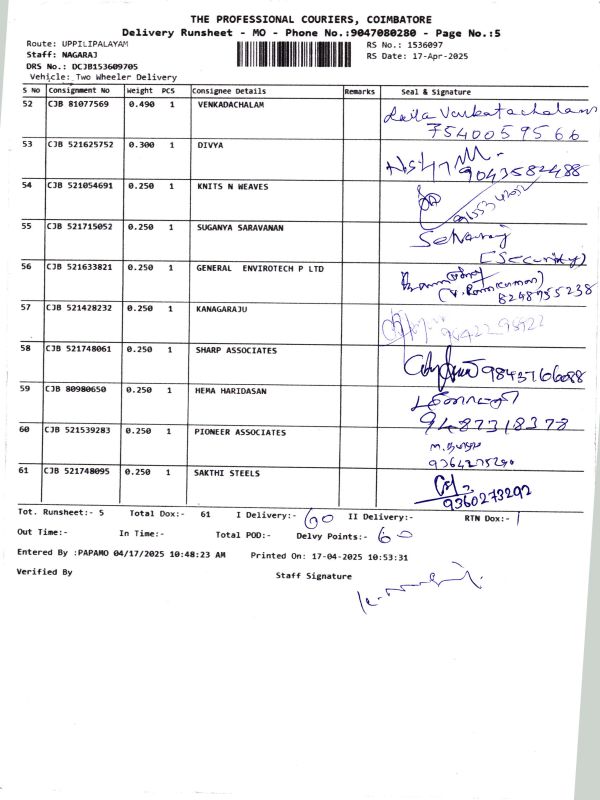 THE PROFESSIONAL COURIERS, COIMBATORE
Delivery Runsheet - MO - Phone No.:9047080280 - Page No.:5
Route: UPPILIPALAYAM RS No.: 1536097
Staff: NAGARAJ RS Date: 17-Apr-2025
DRS No.: DCJB153609705
Vehicle: Two Wheeler Delivery
S No Consignment No Weight PCS Consignee Details Remarks Seal & Signature
52 CJB 81077569 0.490 1 VENKADACHALAM Venkatachalam
7540059566
53 CJB 521625752 0.300 1 DIVYA
9043582488
54 CJB 521054691 0.250 1 KNITS N WEAVES
55 CJB 521715052 0.250 1 SUGANYA SARAVANAN Selvaraj
(Security)
56 CJB 521633821 0.250 1 GENERAL ENVIROTECH P LTD
(V. Ramkumar)
8248955238
57 CJB 521428232 0.250 1 KANAGARAJU
58 CJB 521748061 0.250 1 SHARP ASSOCIATES 9843766088
59 CJB 80980650 0.250 1 HEMA HARIDASAN
9487318378
60 CJB 521539283 0.250 1 PIONEER ASSOCIATES
61 CJB 521748095 0.250 1 SAKTHI STEELS
9360273292
Tot. Runsheet:- 5 Total Dox:- 61 I Delivery:- 60 II Delivery:- RTN Dox:- 1
Out Time:- In Time:- Total POD:- Delvy Points:- 60
Entered By :PAPAMO 04/17/2025 10:48:23 AM Printed On: 17-04-2025 10:53:31
Verified By Staff Signature